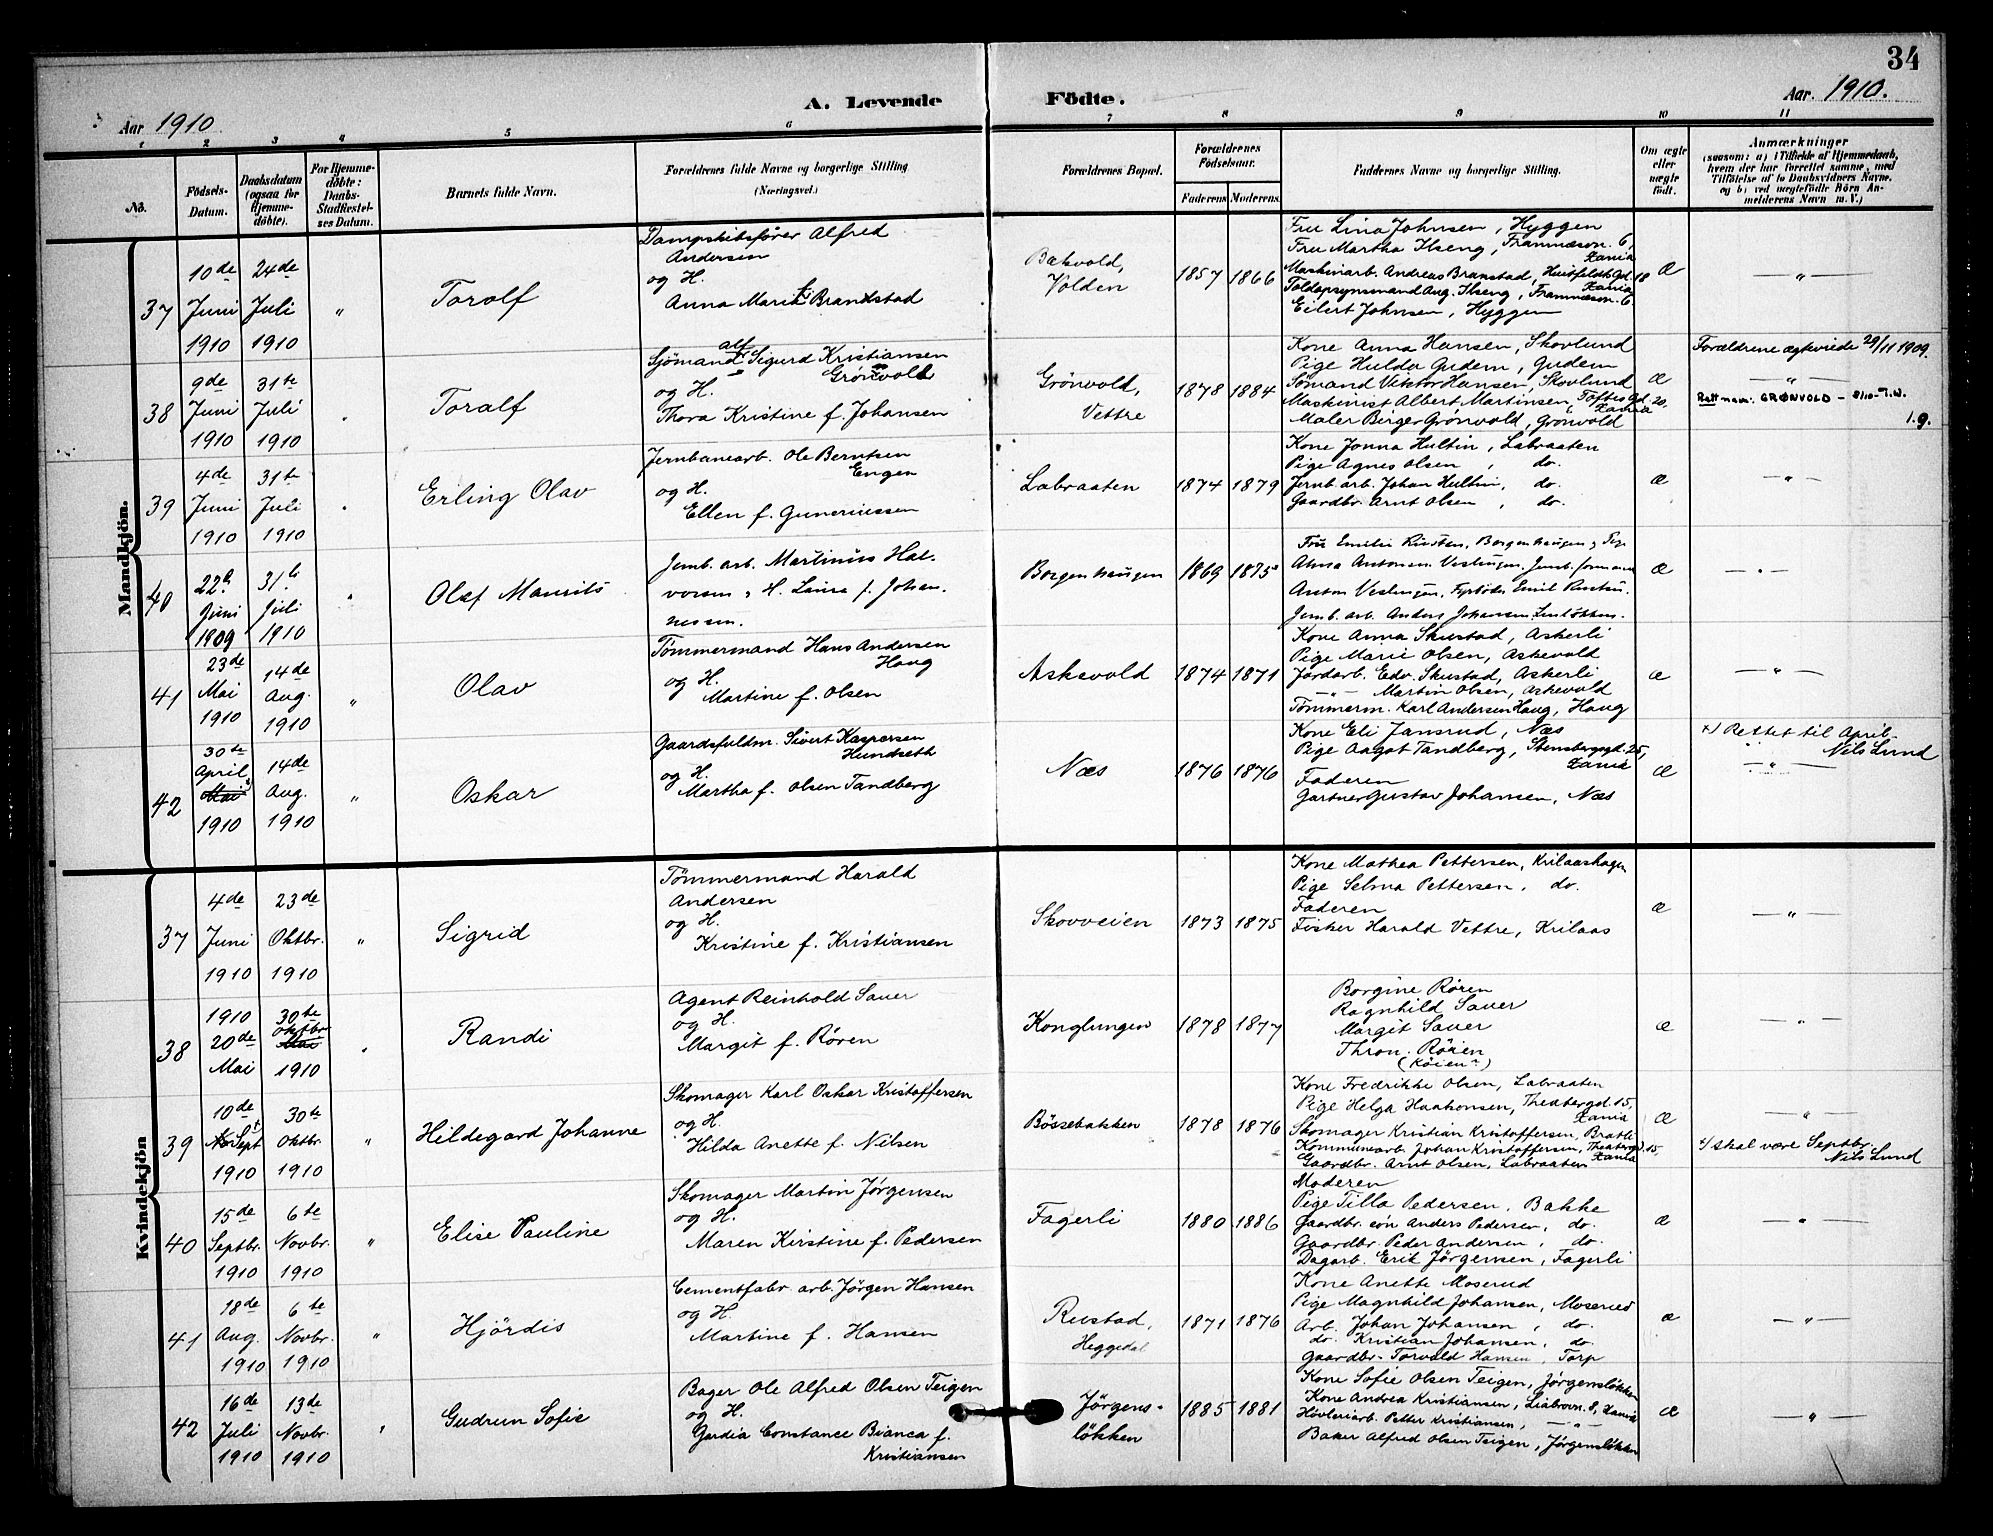 34
Aar 1910
A. Levende Födte.
Aar. 1910.
1 2 3 4 5 6 7 8 9 10 11
No.
Födsels-Datum.
Daabsdatum (ogsaa for Hjemmedöbte).
For Hjemmedöbte: Daabs-Stadfestelses Datum.
Barnets fulde Navn.
Forældrenes fulde Navne og borgerlige Stilling (Næringsvei.)
Forældrenes Bopæl.
Forældrenes Födselsaar.
Faderens Moderens
Faddernes Navne og borgerlige Stilling.
Om ægte eller uægte födt.
Anmærkninger
(saasom: a) i Tilfælde af Hjemmedaab, hvem der har forrettet samme, med Tilföielse af to Daabsvidners Navne, og b) ved uægtefödte Börn Anmelderens Navn m. V.)
Mandkjön.
37
10de Juni 1910
24de Juli 1910
"
Torolf
Dampskibsförer Alfred
Andersen
og H.
Anna Marie f. Brandstad
Bakvold,
Volden
1857 1866
Fru Lina Johnsen, Hyggen
Fru Martha Ilseng, Framnæsvn. 6,
Xania
Maskinarb. Andreas Branstad, Huitfeldts Gd. 18
Xania
Toldopsynsmand Aug. Ilseng, Framnæsvn. 6
Eilert Johnsen, Hyggen
Æ
— " —
38
9de Juni 1910
31te Juli 1910
"
Toralf
Sjömand Alf Sigurd Kristiansen
Grönvold
og H.
Thora Kristine f. Johansen
Grönvold,
Vettre
1878 1884
Kone Anna Hansen, Skovlund
Pige Hulda Gudem, Gudem
Sömand Viktor Hansen, Skovlund
Maskinist Albert Martinsen, Toftes Gd. 20,
Xania
Maler Birger Grönvold, Grönvold
Æ
Forældrene ægteviede 29/11 1909.
— " —
Rett navn: GRØNVOLD – 8/10 – T.W.
1.9.
39
4de Juni 1910
31te Juli 1910
"
Erling Olav
Jernbanearb. Ole Berntsen
Engen
og H.
Ellen f. Guneriussen
Labraaten
1874 1879
Kone Jonna Hultin, Labraaten
Pige Agnes Olsen, do.
Jernb. arb. Johan Hultin, do.
Gaardbr. Arnt Olsen, do.
Æ
— " —
40
22de Juni 1909
31te Juli 1910
"
Olaf Maurits
Jernb. arb. Martinius Hal-
vorsen & H. Laura f. Johan-
nessen.
Borgenhaugen
1869 1875
Fru Emilie Rustan, Borgenhaugen, Pige
Anna Antonsen Veslungen, Jernb. formann
Anton Veslungen, Fyrböder Emil Rustan.
Jernb. arb. Anders Johansen
Æ
— " —
41
23de Mai 1910
14de Aug. 1910
"
Olav
Tömmermand Hans Andersen
Haug
og H.
Martine f. Olsen
Askevold
1874 1871
Kone Anna Skustad, Askerli
Pige Marie Olsen, Askevold
Jordarb. Edv. Skustad, Askerli
— " — Martin Olsen, Askevold
Tömmerm. Karl Andersen Haug, Haug
Æ
— " —
42
30te April x) Mai 1910
14de Aug. 1910
"
Oskar
Gaardsfuldm. Sivert Kaspersen
Hundseth
og H.
Martha f. Olsen Tandberg
Næs
1876 1876
Kone Eli Jansrud, Næs
Pige Aagot Tandberg, Stensberggd. 25,
Xania
Faderen
Gartner Gustav Johansen, Næs
Æ
x) Rettet til April.
Nils Lund
— " —
Kvindekjön
37
4de Juni 1910
23de Oktbr. 1910
"
Sigrid
Tömmermand Harald
Andersen
og H.
Kristine f. Kristiansen
Skovveien
1873 1875
Kone Mathea Pettersen, Krilaashagen
Pige Selma Pettersen, do.
Faderen
Fisker Harald Vettre, Krilaas
Æ
— " —
38
1910 20de Mai
30te Oktbr. Mai 1910
"
Randi
Agent Reinhold Sauer
og H.
Margit f. Rören
Konglungen
1878 1877
Borgine Rören
Ragnhild Sauer
Margit Sauer
Thron. Röien
(Röien?)
Æ
— " —
39
10de Sept 1910
30te Oktbr. 1910
"
Hildegard Johanne
Skomager Karl Oskar Kristoffersen
og H.
Hilda Anette f. Nilsen
Bössebakken
1878 1876
Kone Fredrikke Olsen, Labraaten
Pige Helga Haakonsen, Theatergd. 15,
Xania
Skomager Kristian Kristoffersen, Bratli
Kommunearb. Johan Kristoffersen, Theatergd. 15,
Xania
Gaardbr. Arnt Olsen, Labraaten
Æ
— " —
x) skal være Septbr.
Nils Lund
40
15de Septbr. 1910
6te Novbr. 1910
"
Elise Pauline
Skomager Martin Jörgensen
og H.
Maren Kirstine f. Pedersen
Fagerli
1880 1886
Moderen
Pige Tilla Pedersen, Bakke
Gaardbr. sön Anders Pedersen, do.
Gaardbr. Peder Andersen, do.
Dagarb. Erik Jörgensen, Fagerli
Æ
— " —
41
18de Aug. 1910
6te Novbr. 1910
"
Hjördis
Cementfabr. arb. Jörgen Hansen
og H.
Martine f. Hansen
Rustad,
Heggedal
1871 1876
Kone Anette Moserud
Pige Magnhild Johansen, Moserud
Arb. Johan Johansen, do.
do. Kristian Johansen, do.
Gaardbr. Torvald Hansen, Torp
Æ
— " —
42
16de Juli 1910
13de Novbr. 1910
"
Gudrun Sofie
Bager Ole Alfred Olsen Teigen
og H.
Gerdia Constance Bianca f.
Kristiansen
Jörgens-
lökken
1885 1881
Kone Sofie Olsen Teigen, Jörgenslökken
Kone Andrea Kristiansen, Liabrovn. 8, Xania
Hövleriarb. Petter Kristiansen, — " —
Baker Alfred Olsen Teigen, Jörgenslökken
Æ
— " —